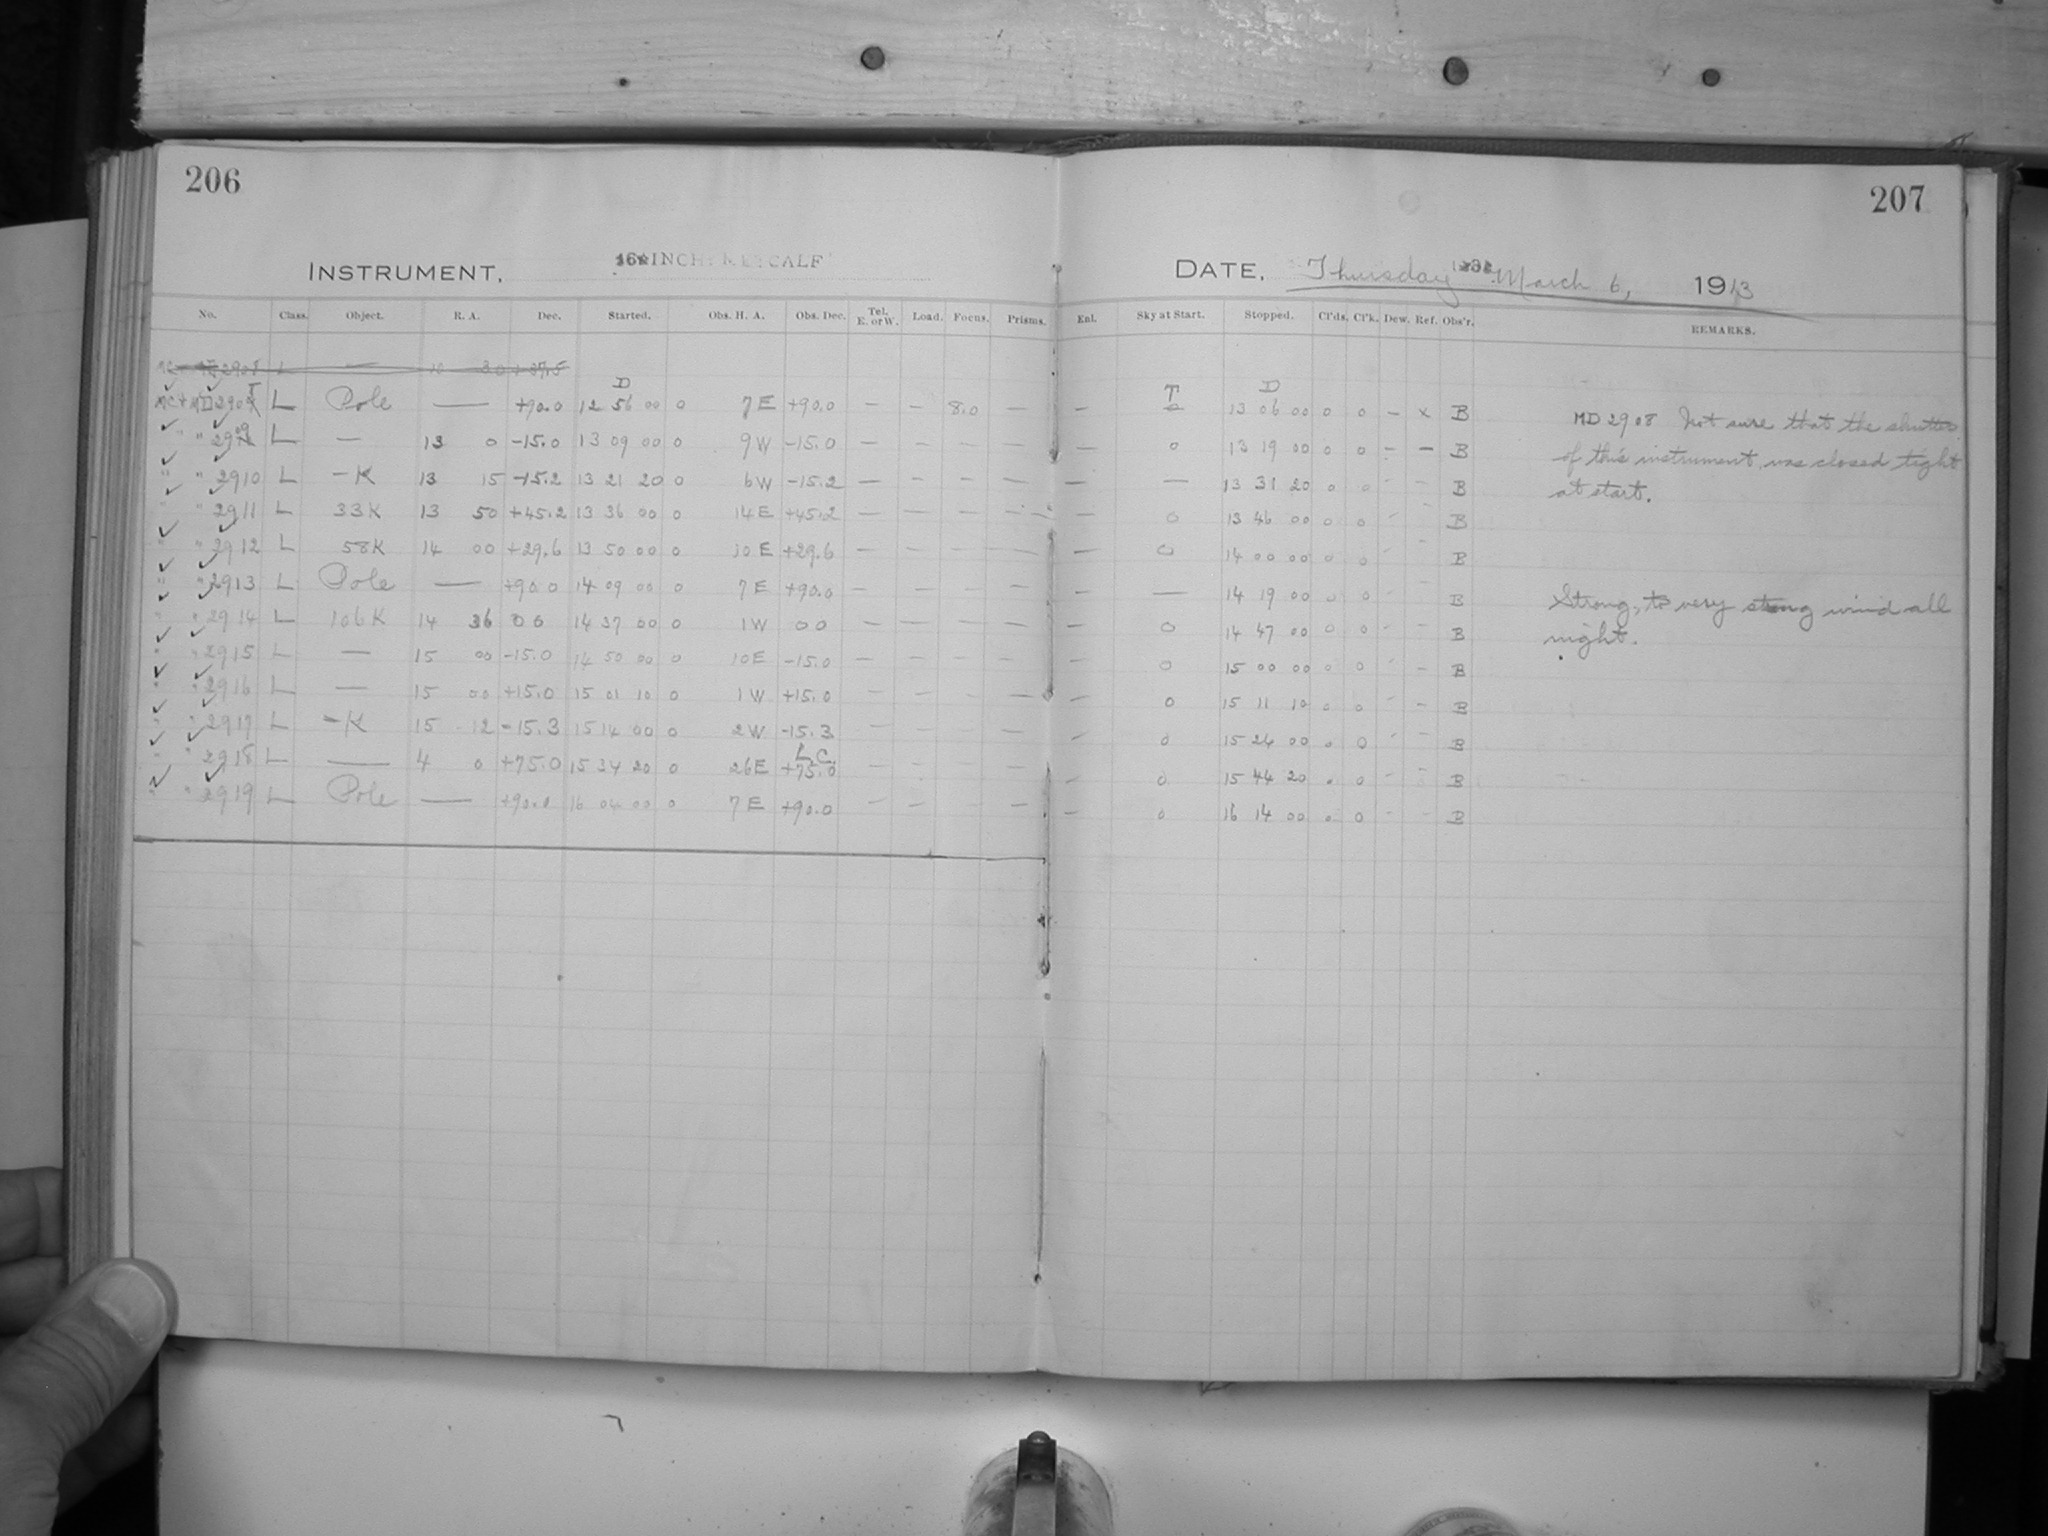 206
207
INSTRUMENT, 16 INCH METCALF
DATE, Thursday March 6, 1913
No. Class. Object. R. A. Dec. Started. Obs. H. A. Obs. Dec. Tel. E. or W. Load. Focus. Prisms. Enl. Sky at Start. Stopped. Cl'ds. Cl'k. Dew. Ref. Obs'r. REMARKS.
2908 L — 30 +37.5
D T D
MC + MD 2908 L Pole — +90.0 12 56 00 0 7 E +90.0 — — 8.0 — — 0 13 06 00 0 0 – x B
" " 2909 L — 13 0 -15.0 13 09 00 0 9 W -15.0 — — — — — 0 13 19 00 0 0 – – B
" " 2910 L -K 13 15 -15.2 13 21 20 0 6 W -15.2 — — — — — — 13 31 20 0 0 - - B
" " 2911 L 33K 13 50 +45.2 13 36 00 0 14 E +45.2 — — — — — 0 13 46 00 0 0 - - B
" " 2912 L 58K 14 00 +29.6 13 50 00 0 10 E +29.6 — — — — — 0 14 00 00 0 0 - - B
" " 2913 L Pole — +90.0 14 09 00 0 7 E +90.0 — — — — — — 14 19 00 0 0 - - B
" " 2914 L 106K 14 36 00 14 37 00 0 1 W 00 — — — — — 0 14 47 00 0 0 - - B
" " 2915 L — 15 00 -15.0 14 50 00 0 10 E -15.0 — — — — — 0 15 00 00 0 0 - - B
" " 2916 L — 15 00 +15.0 15 01 10 0 1 W +15.0 — — — — — 0 15 11 10 0 0 - - B
" " 2917 L -K 15 12 -15.3 15 14 00 0 2 W -15.3 — — — — 0 15 24 00 0 0 - - B
L.C.
" " 2918 L — 4 0 +75.0 15 34 20 0 26 E +75.0 — — — — — 0 15 44 20 0 0 - - B
" " 2919 L Pole — +90.0 16 04 00 0 7 E +90.0 — — — — 0 16 14 00 0 0 - - B
MD 2908 Not sure that the shutter
of this instrument was closed tight
at start.
Strong, to very strong wind all
night.